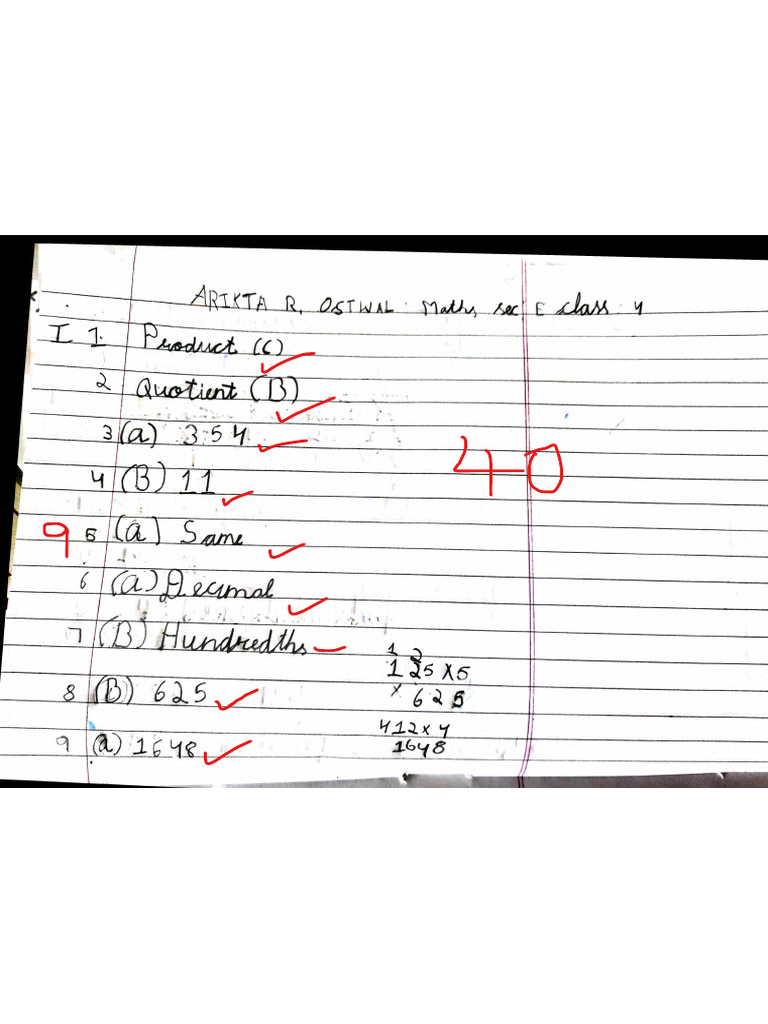 ARIKTA R. OSTWAL Maths sec E class 4
I 1. Product (C)
2 Quotient (B)
3 (a) 354
40
4 (B) 11
9 5 (a) Same
6 (a) Decimal
7 (B) Hundredths
1 2
125 x 5
x 625
8 (B) 625
412 x 4
1648
9 (a) 1648